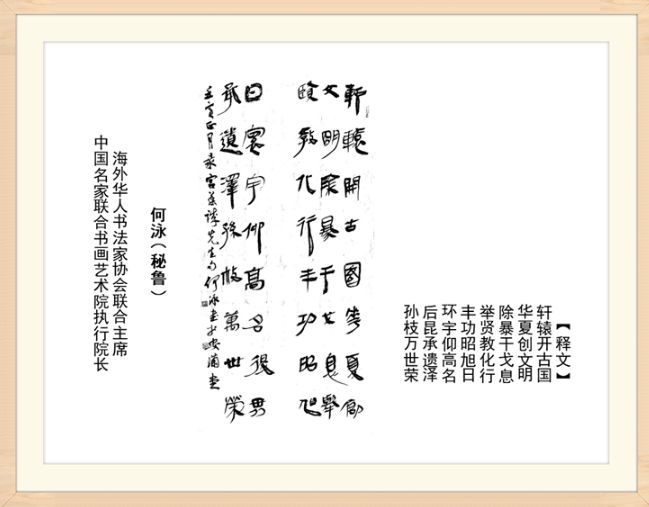 【释文】
轩辕开古国
华夏创文明
除暴干戈息
举贤教化行
丰功昭旭日
环宇仰高名
后昆承遗泽
孙枝万世荣
軒轅開古國華夏創
文明除暴干戈息舉
賢教化行丰功昭旭
日寰宇仰高名後昆
承遺澤孫枝萬世榮
正月录先生句何泳書
何泳（秘鲁）
海外华人书法家协会联合主席
中国名家联合书画艺术院执行院长